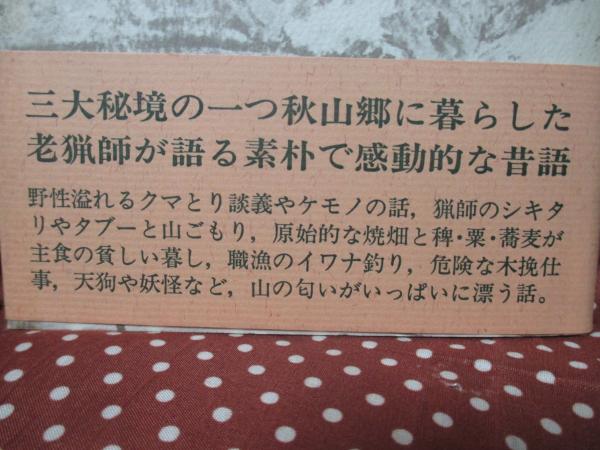 三大秘境の一つ秋山郷に暮らした
老猟師が語る素朴で感動的な昔語
野性溢れるクマとり談義やケモノの話，猟師のシキタ
リやタブーと山ごもり，原始的な焼畑と稗・粟・蕎麦が
主食の貧しい暮し，職漁のイワナ釣り，危険な木挽仕
事，天狗や妖怪など，山の匂いがいっぱいに漂う話。